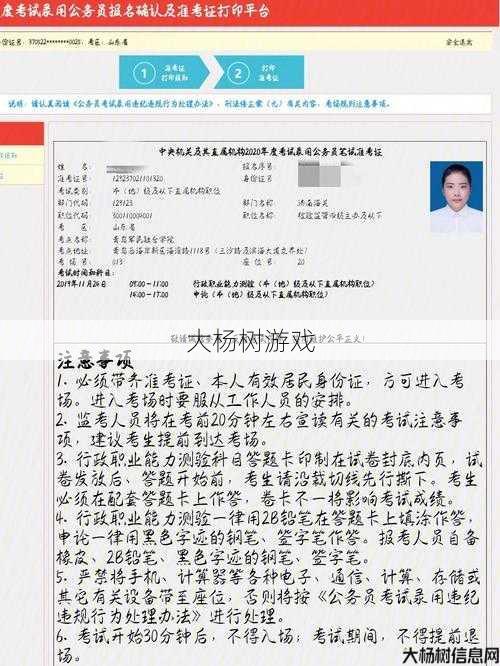 度考试录用公务员报名确认及准考证打印平台
份证号：370822********0028，考区：山东省
安全退出
1 准考证打印须知
2 打印准考证
说明：请认真阅读《公务员考试录用违纪违规行为处理办法》，刑法修正案（九）有关内容，考场规则注意事项。
中央机关及其直属机构2020年度考试录用公务员笔试准考证
姓 名：
报名序号：
准考证号：
身份证号：
考试类别：市（地）级及以下直属机构职位
部门代码：
部门名称：济南海关
职位代码：
职位名称：
考 区：山东省
考点名称：青岛军民融合学院
考点地址：
考 场 号：013
座 位 号：20
考试时间和科目：
09:00－11:00 行政职业能力测验（市（地）级及以下直属机构职位）
申论（市（地）级及以下直属机构职位）
大杨树游戏
注意事项
1. 必须带齐准考证、本人有效居民身份证，方可进入考
场。进入考场时要服从工作人员的安排。
2. 监考人员将在考前20分钟左右宣读有关的考试注意事
项，建议考生提前到达考场。
3. 行政职业能力测验科目答题卡印制在试卷封底内页，试
卷发放后、答题开始前，考生请沿裁切线先行撕下。考生
必须在配套答题卡上作答，卷卡不一将影响考试成绩。
4. 行政职业能力测验一律用2B铅笔在答题卡上填涂作答，
申论一律用黑色字迹的钢笔、签字笔作答。报考人员自备
橡皮、2B铅笔、黑色字迹的钢笔、签字笔。
5. 严禁将手机、计算器等各种电子、通信、计算、存储或
其它有关设备带至座位，否则将按《公务员考试录用违纪
违规行为处理办法》进行处理。
6. 考试开始30分钟后，不得入场；考试期间，不得提前退
场。
大杨树信息网